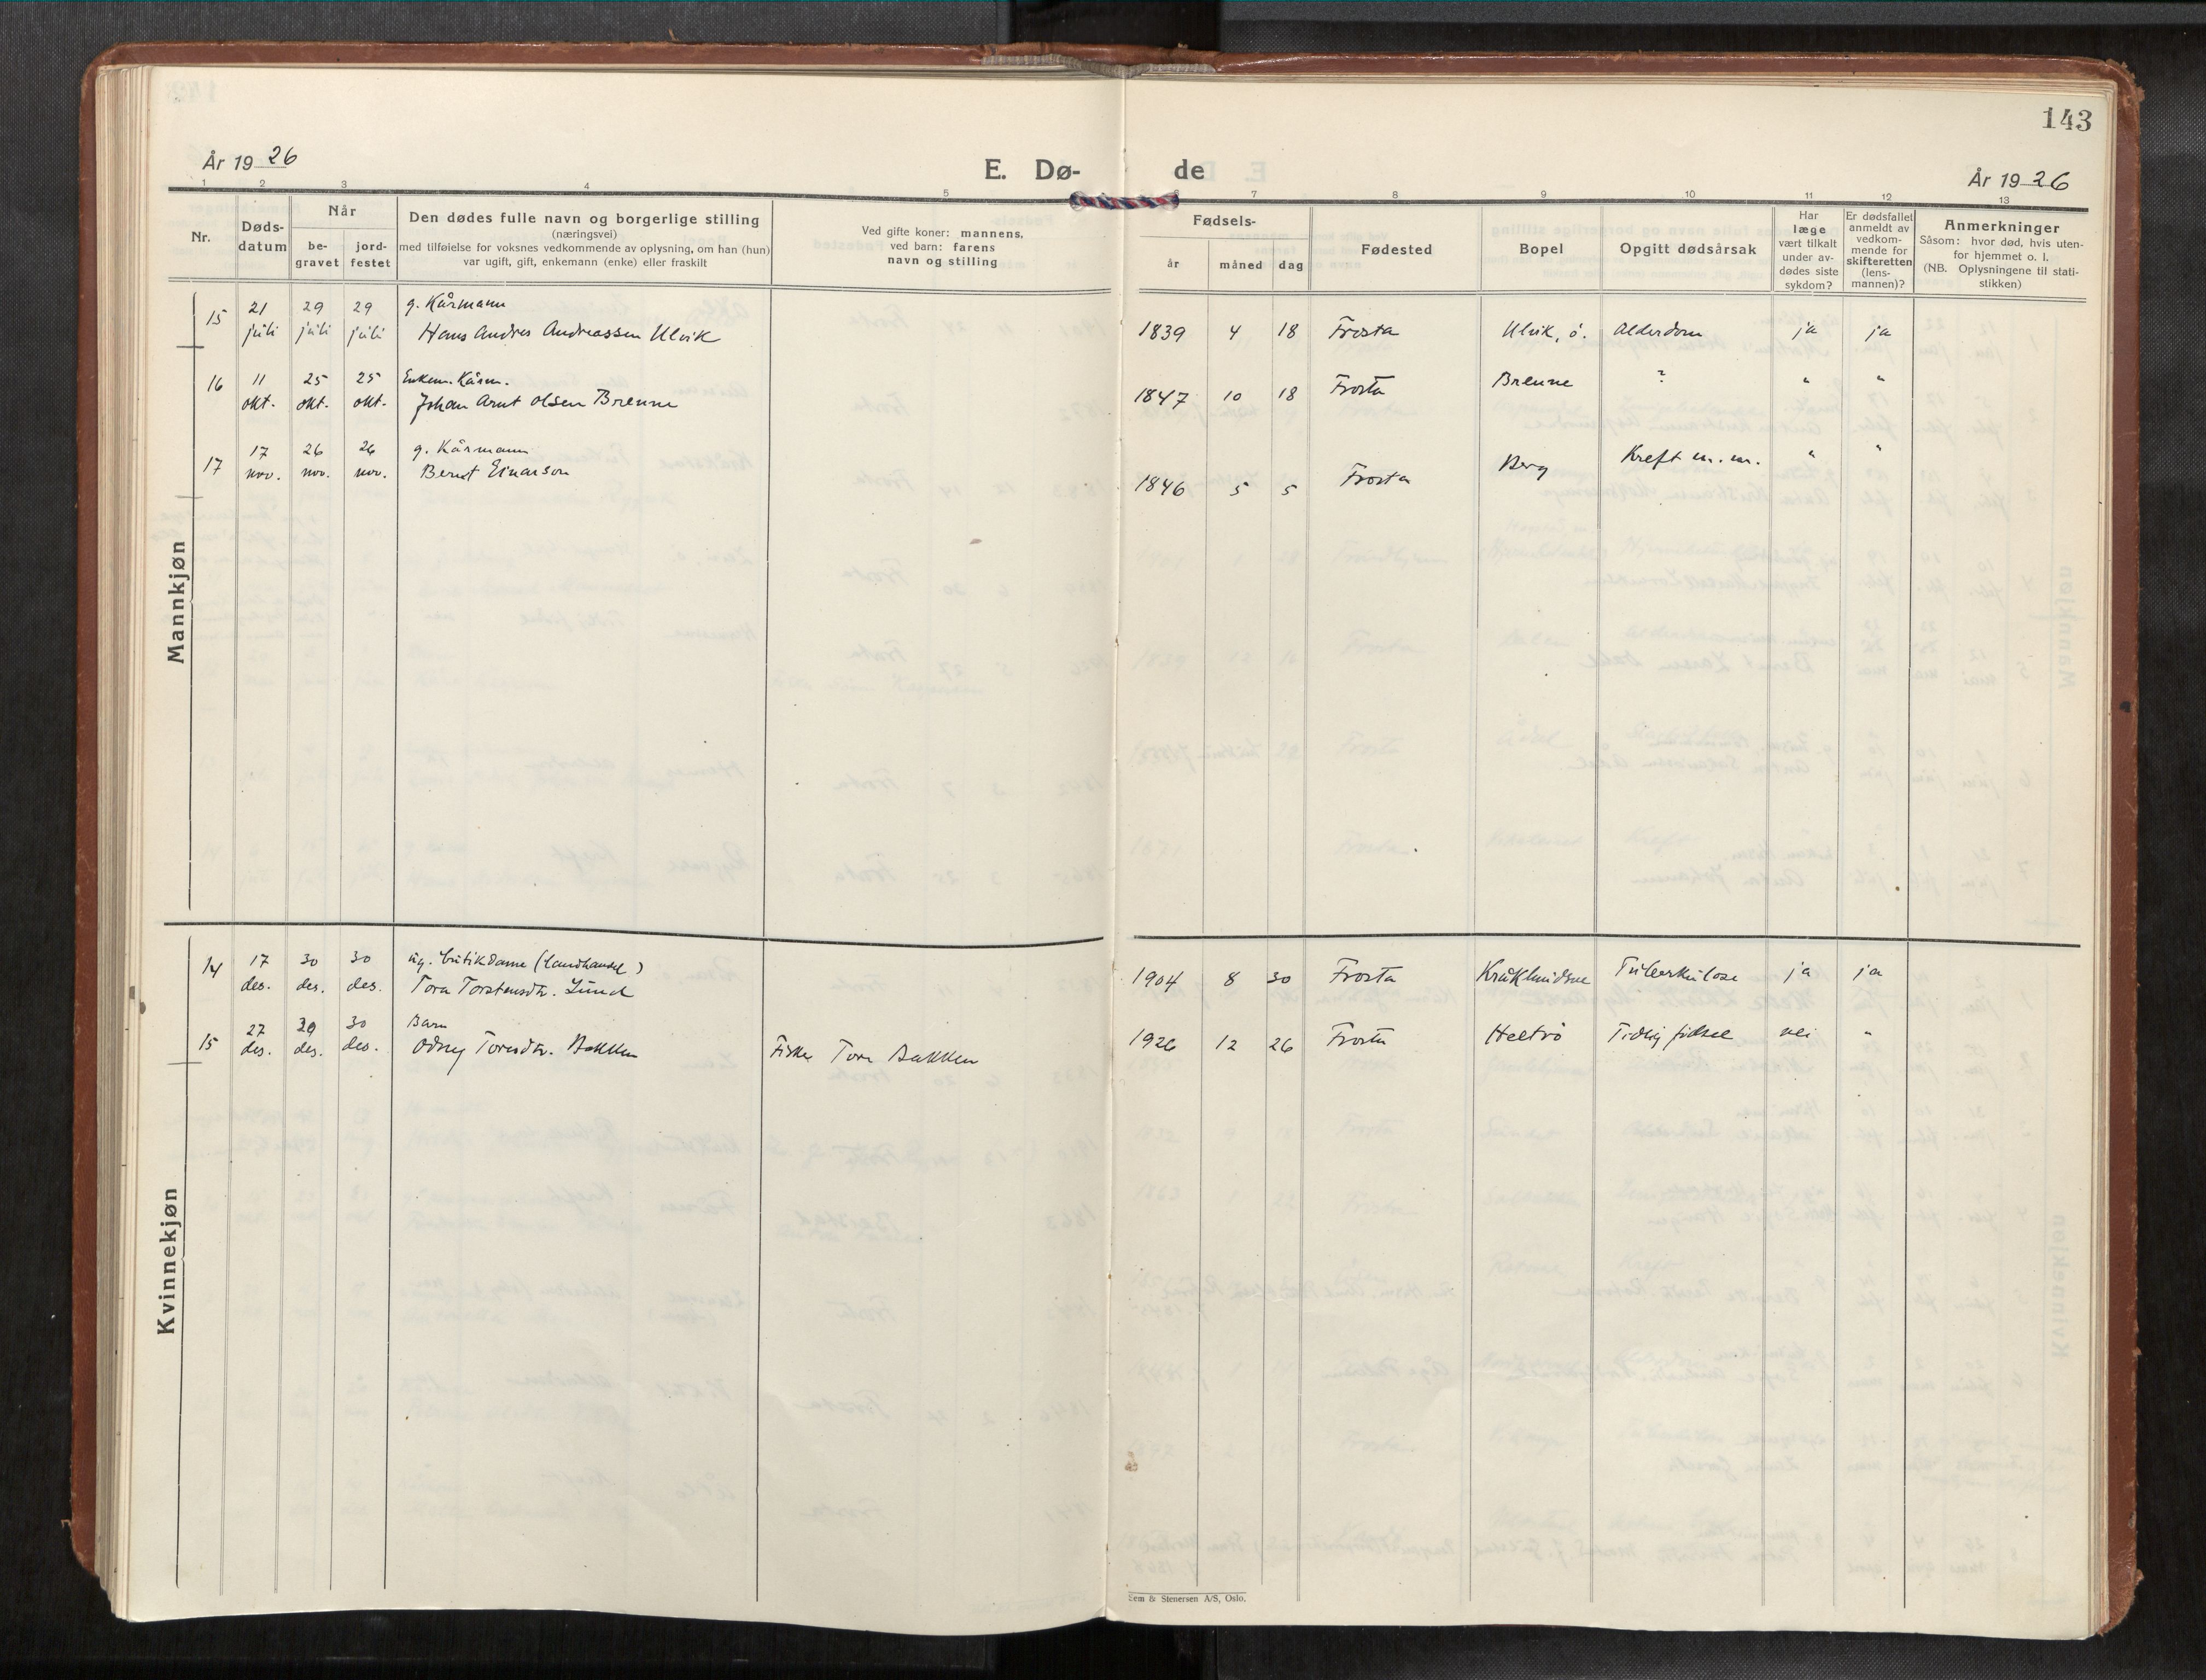 143
År 1926
E. Dø-
de
År 1926
1 2 3 4 5 6 7 8 9 10 11 12 13
Nr.
Døds-
datum
Når
be-
gravet
jord-
festet
Den dødes fulle navn og borgerlige stilling
(næringsvei)
med tilføielse for voksnes vedkommende av oplysning, om han (hun)
var ugift, gift, enkemann (enke) eller fraskilt
Ved gifte koner: mannens,
ved barn: farens
navn og stilling
Fødsels-
år måned dag
Fødested
Bopel
Opgitt dødsårsak
Har
læge
vært tilkalt
under av-
dødes siste
sykdom?
Er dødsfallet
anmeldt av
vedkom-
mende for
skifteretten
(lens-
mannen)?
Anmerkninger
Såsom: hvor død, hvis uten-
for hjemmet o. l.
(NB. Oplysningene til stati-
stikken)
Mannkjøn
21 29 29 g. Kårmann
15 juli juli juli Hans Andres Andreassen Ulvik 1839 4 18 Frosta Ulvik, ö. Alderdom ja ja
11 25 25 Enkem. Kårm.
16 okt. okt. okt. Johan Arnt Olsen Brenne 1847 10 18 Frosta Brenne ? " "
17 26 26 g. Kårmann
17 nov. nov. nov. Bernt Einarson 1846 5 5 Frosta Berg Kreft m.m. " "
Kvinnekjøn
17 30 30 ug. butikdame (Landhandel)
14 des. des. des. Tora Torstensdtr. Lund 1904 8 30 Frosta Tuberkulose ja ja
27 29 30 Barn
15 des. des. des. Odny Toresdtr. Bakken Fisker Tore Bakken 1926 12 26 Frosta Tidlig födsel nei "
Sem & Stenersen A/S, Oslo.